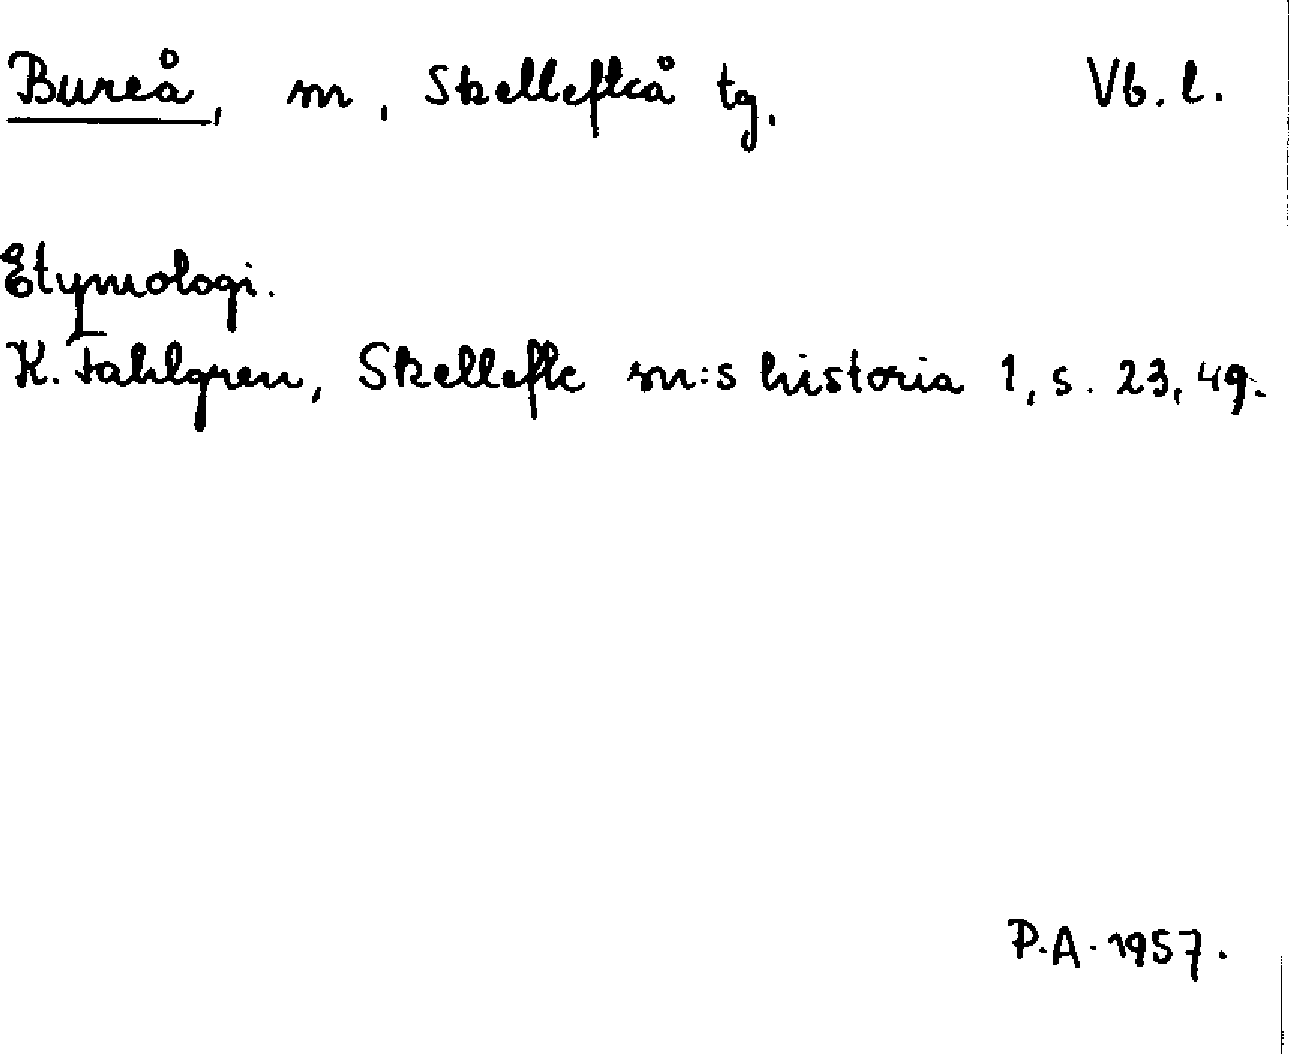 Bureå, sn, Skellefteå tg. Vb. l.
Etymologi.
K. Fahlgren, Skellefte sn:s historia 1, s. 23, 49.
P.A. 1957.